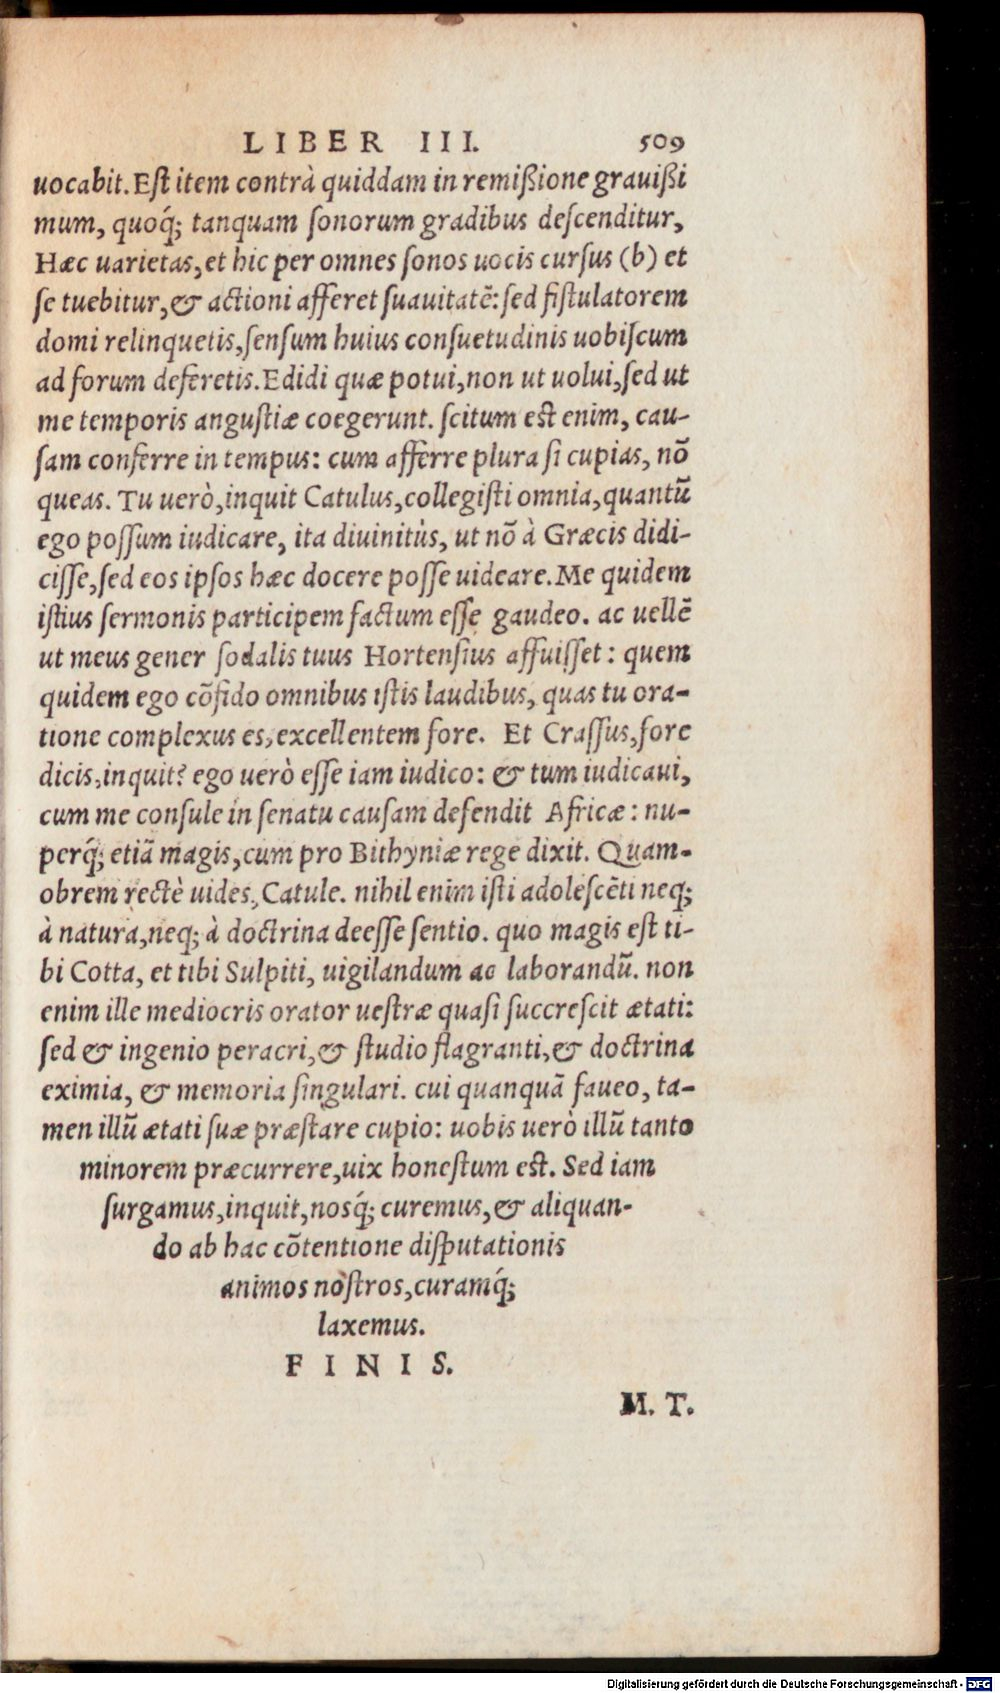 LIBER III. 509
uocabit. Est item contrà quiddam in remißione grauißi
mum, quoq́; tanquam sonorum gradibus descenditur,
Hæc uarietas, et hic per omnes sonos uocis cursus (b) et
se tuebitur, & actioni afferet suauitatẽ: sed fistulatorem
domi relinquetis, sensum huius consuetudinis uobiscum
ad forum deferetis. Edidi quæ potui, non ut uolui, sed ut
me temporis angustiæ coegerunt. scitum est enim, cau-
sam conferre in tempus: cum afferre plura si cupias, nõ
queas. Tu uerò, inquit Catulus, collegisti omnia, quantũ
ego possum iudicare, ita diuinitùs, ut nõ à Græcis didi-
cisse, sed eos ipsos hæc docere posse uideare. Me quidem
istius sermonis participem factum esse gaudeo. ac uellẽ
ut meus gener sodalis tuus Hortensius affuisset: quem
quidem ego cõfido omnibus istis laudibus, quas tu ora-
tione complexus es, excellentem fore. Et Crassus, fore
dicis, inquit? ego uerò esse iam iudico: & tum iudicaui,
cum me consule in senatu causam defendit Africæ: nu-
perq́; etiã magis, cum pro Bithyniæ rege dixit. Quam-
obrem rectè uides, Catule. nihil enim isti adolescẽti neq;
à natura, neq; à doctrina deesse sentio. quo magis est ti-
bi Cotta, et tibi Sulpiti, uigilandum ac laborandũ. non
enim ille mediocris orator uestræ quasi succrescit ætati:
sed & ingenio peracri, & studio flagranti, & doctrina
eximia, & memoria singulari. cui quanquã faueo, ta-
men illũ ætati suæ præstare cupio: uobis uerò illũ tanto
minorem præcurrere, uix honestum est. Sed iam
surgamus, inquit, nosq́; curemus, & aliquan-
do ab hac cõtentione disputationis
animos nostros, curamq́;
laxemus.
FINIS.
M. T.
Digitalisierung gefördert durch die Deutsche Forschungsgemeinschaft - DFG